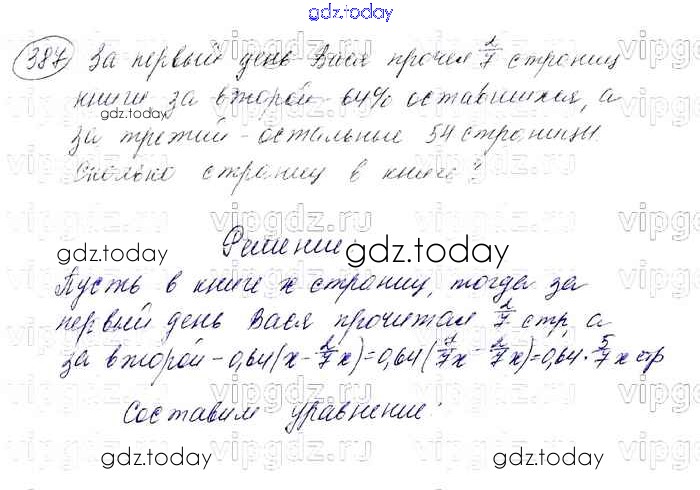 gdz.today
387 За первый день Вася прочел 2/7 страниц
книги за второй - 64% оставшихся, а
gdz.today
за третий - остальные 54 страницы.
Сколько страниц в книге?
Решение
gdz.today gdz.today
Пусть в книге x страниц, тогда за
первый день Вася прочитал 2/7 стр, а
за второй - 0,64(x - 2/7x) = 0,64(7/7x - 2/7x) = 0,64 · 5/7 x стр
Составим уравнение:
gdz.today gdz.today
vipgdz.ru